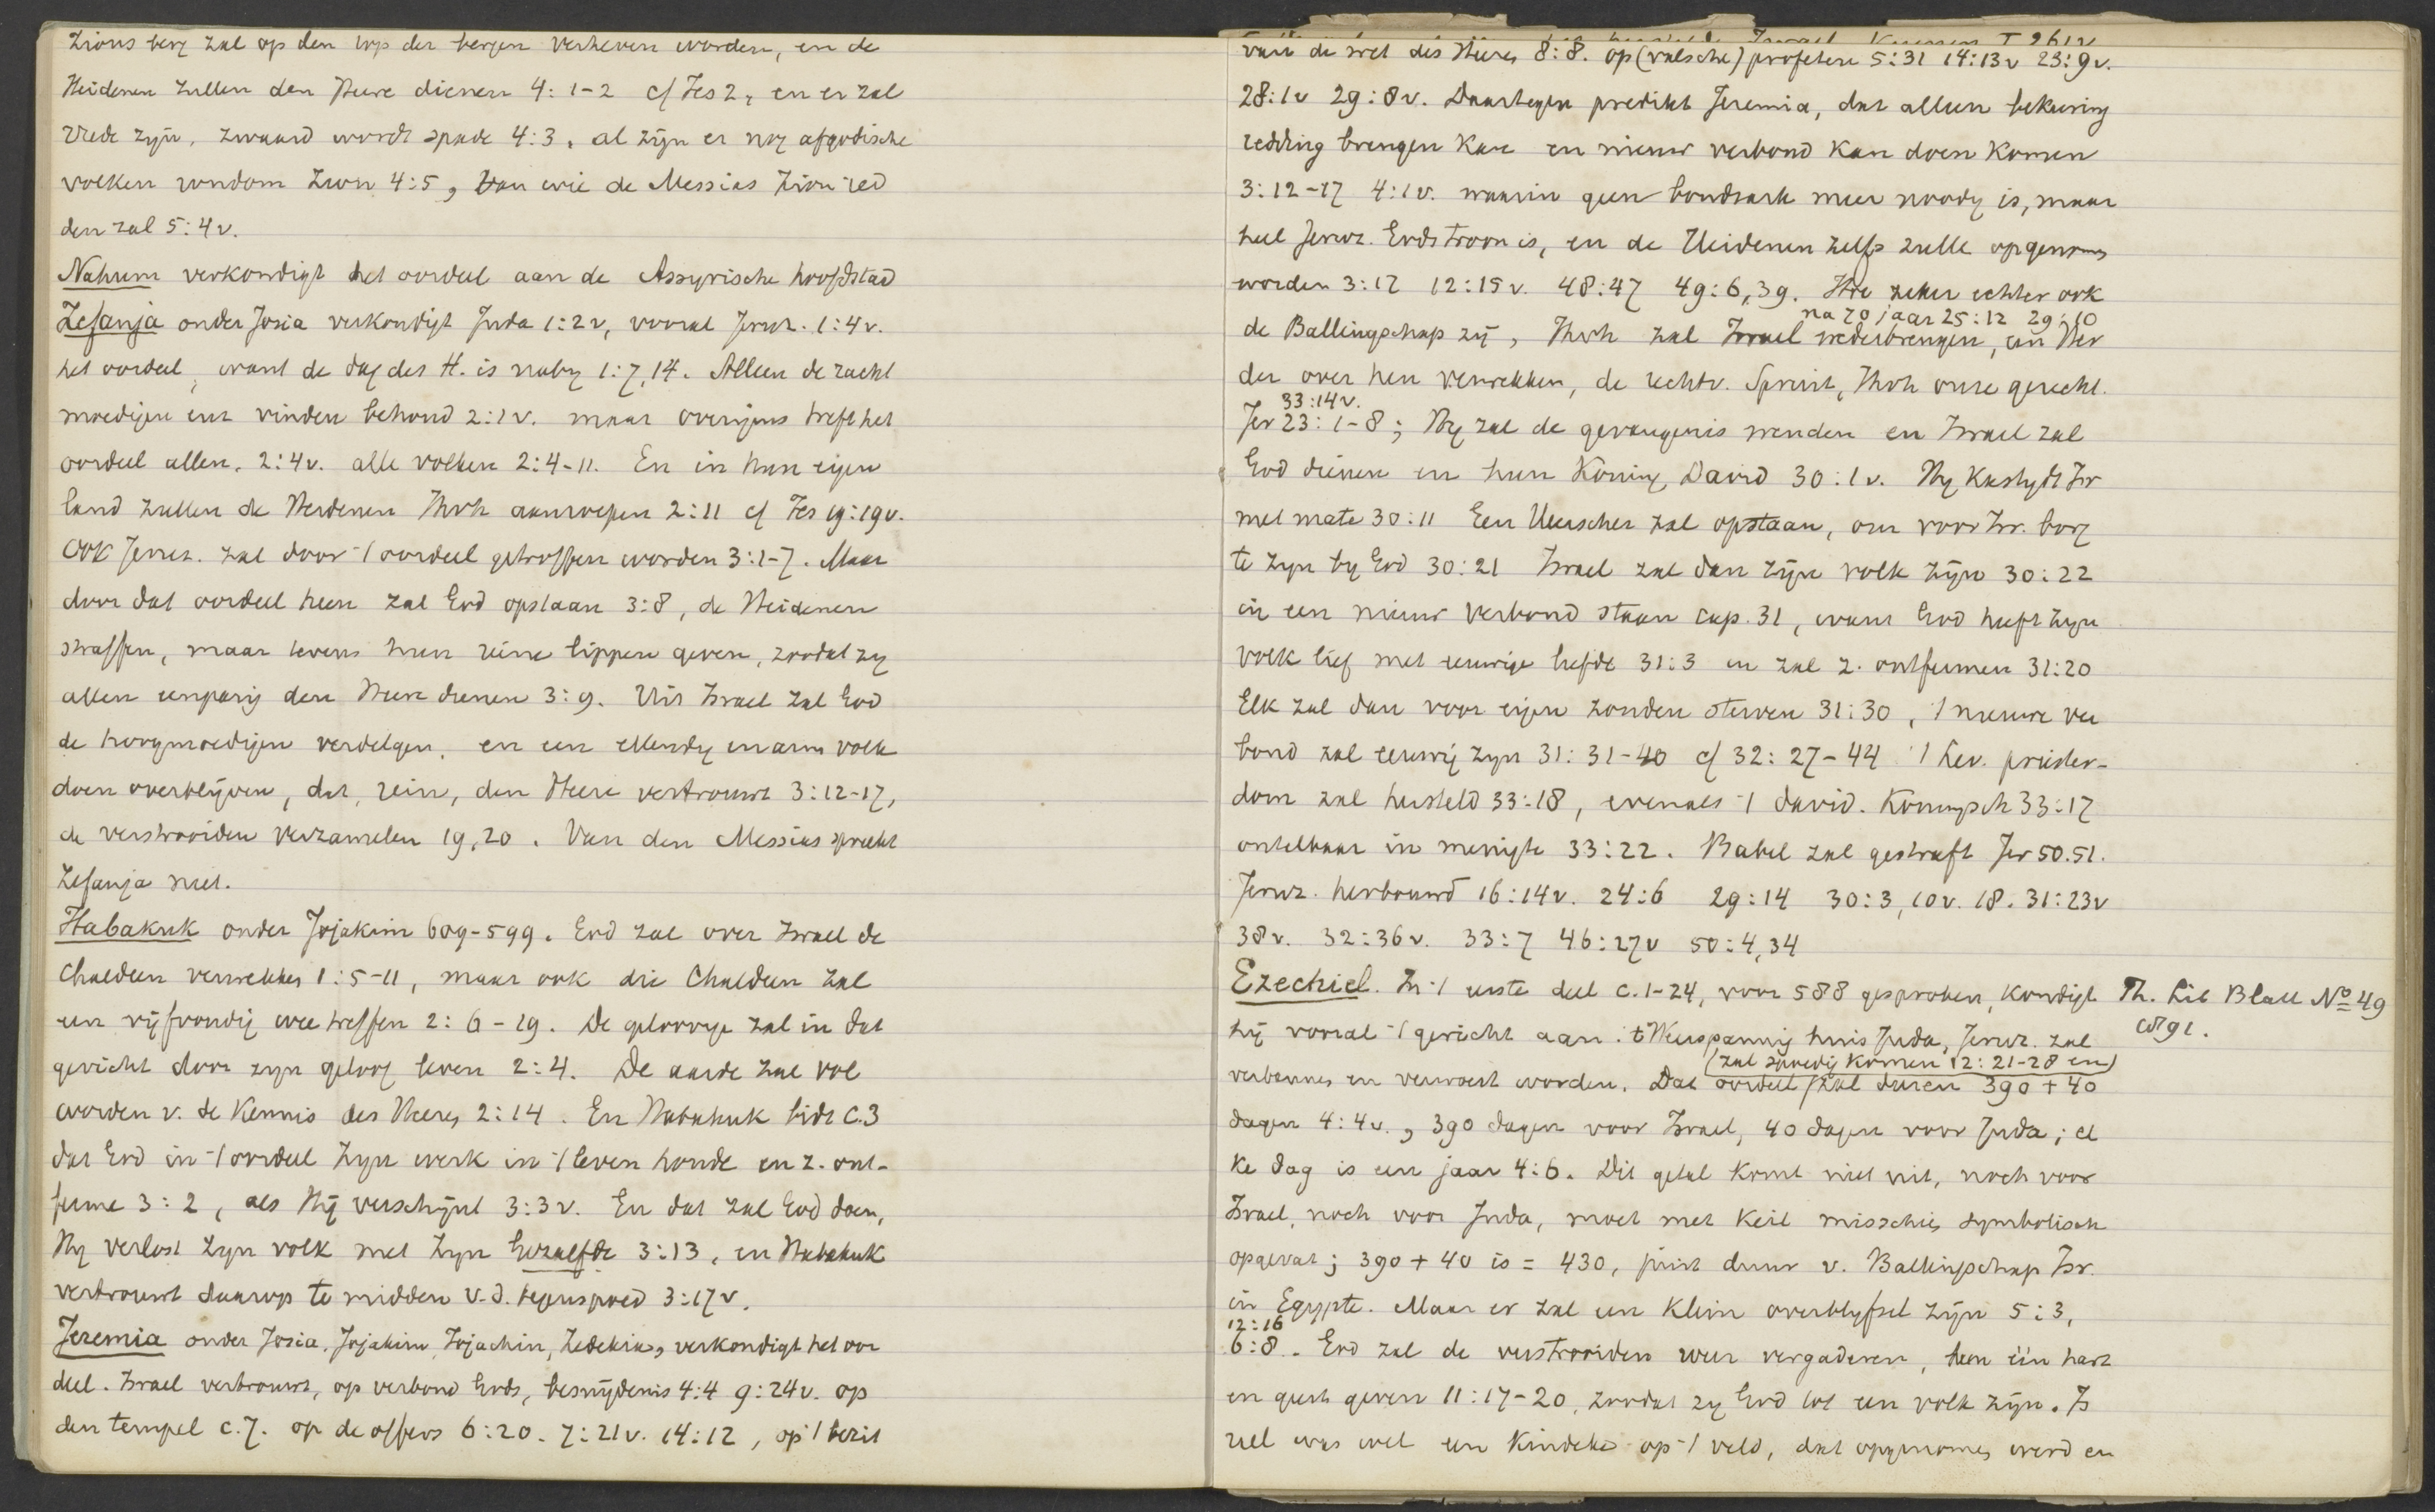 Zions berg zal op den top der bergen verheven worden, en de
Heidenen zullen den Heere dienen 4:1-2 cf Jes 2, en er zal
vrede zijn, zwaard wordt spade 4:3, al zijn er nog afgodische
volken rondom Zion 4:5, van wie de Messias Zion red
den zal 5:4v.
Nahum verkondigt het oordeel aan de Assyrische hoofdstad
Zefanja onder Josia verkondigt Juda 1:2v, vooral Jeruz. 1:4v.
het oordeel, want de dag des H. is naby 1:7,14. Alleen de zacht
moedigen enz vinden behoud 2:1v. maar overigens treft het
oordeel allen. 2:4v. alle volken 2:4-11. En in hun eigen
land zullen de Heidenen Jhvh aanroepen 2:11 cf Jes 19:19v.
Ook Jeruz. zal door 't oordeel getroffen worden 3:1-7. Maar
door dat oordeel heen zal God opstaan 3:8, de Heidenen
straffen, maar tevens hun reine lippen geven, zoodat zy
allen eenparig den Heere dienen 3:9. Uit Israel zal God
de hoogmoedigen verdelgen, en een ellendig en arm volk
doen overblijven, dat, rein, den Heere vertrouwt 3:12-17,
de verstrooiden verzamelen 19,20. Van den Messias spreekt
Zefanja niet.
Habakuk onder Jojakim 609-599. God zal over Israel de
Chaldeen verwekken 1:5-11, maar ook die Chaldeen zal
een vijfvoudig wee treffen 2:6-19. De geloovige zal in dat
gericht door zyn geloof leven 2:4. De aarde zal vol
worden v. de kennis des Heeren 2:14. En Habakuk bidt c.3
dat God in 't oordeel zyn werk in 't leven houde en z. ont-
ferme 3:2, als Hij verschijnt 3:3v. En dat zal God doen,
Hy verlost zyn volk met zyn Gezalfde 3:13, en Habakuk
vertrouwt daarop te midden v.d. tegenspoed 3:17v.
Jeremia onder Josia, Jojakim, Jojachin, Zedekia, verkondigt het oor
deel. Israel vertrouwt, op verbond Gods, besnijdenis 4:4 9:24v. op
den tempel c.7. op de offers 6:20. 7:21v. 14:12, op 't bezit
van de wet des Heeren 8:8. op (valsche) profeten 5:31 14:13v 23:9v.
28:1v 29:8v. Daartegen predikt Jeremia, dat alleen bekeering
redding brengen kan en nieuw verbond kan doen komen
3:12-17 4:1v. waarin geen bondsark meer noodig is, maar
heel Jeruz. Gods troon is, en de Heidenen zelfs zulle opgenomen
worden 3:17 12:15v. 48:47 49:6,39. Hoe zeker echter ook
na 70 jaar 25:12 29:10
de Ballingschap zij, Jhvh zal Israel wederbrengen, een Her
der over hen verwekken, de rechtv. Spruit, Jhvh onze gerecht.
33:14v.
Jer 23:1-8; Hy zal de gevangenis wenden en Israel zal
God dienen en hun Koning David 30:1v. Hy kastydt Isr
met mate 30:11 Een Heerscher zal opstaan, om voor Isr. borg
te zyn by God 30:21 Israel zal dan zijn volk zijn 30:22
in een nieuw verbond staan cap. 31, want God heeft zyn
volk lief met eeuwige liefde 31:3 en zal z. ontfermen 31:20
Elk zal dan voor eigen zonden sterven 31:30, 't nieuwe ver
bond zal eeuwig zyn 31:31-40 cf 32:27-44 't Lev. priester-
dom zal hersteld 33:18, evenals 't david. Koningsch 33:17
ontelbaar in menigte 33:22. Babel zal gestraft Jer 50.51.
Jeruz. herbouwd 16:14v. 24:6 29:14 30:3,10v. 18. 31:23v
38v. 32:36v. 33:7 46:27v 50:4,34
Ezechiel. In 't eerste deel c.1-24, voor 588 gesproken, kondigt
Th. Lit Blatt No 49
1891.
hij vooral 't gericht aan. 't Weerspannig huis Juda, Jeruz. zal
(zal spoedig komen 12:21-28 en)
verbannen en verwoest worden. Dat oordeel zal duren 390+40
dagen 4:4v., 390 dagen voor Israel, 40 dagen voor Juda; el
ke dag is een jaar 4:6. Dit getal komt niet uit, noch voor
Israel, noch voor Juda, moet met Keil misschien symbolisch
opgevat; 390+40 is = 430, juist duur v. Ballingschap Isr.
in Egypte. Maar er zal een klein overblyfsel zijn 5:3,
12:16
6:8. God zal de verstrooiden weer vergaderen, hen één hart
en geest geven 11:17-20, zoodat zy God tot een volk zijn. Is
rael was wel een kindeke op 't veld, dat opgenomen werd en